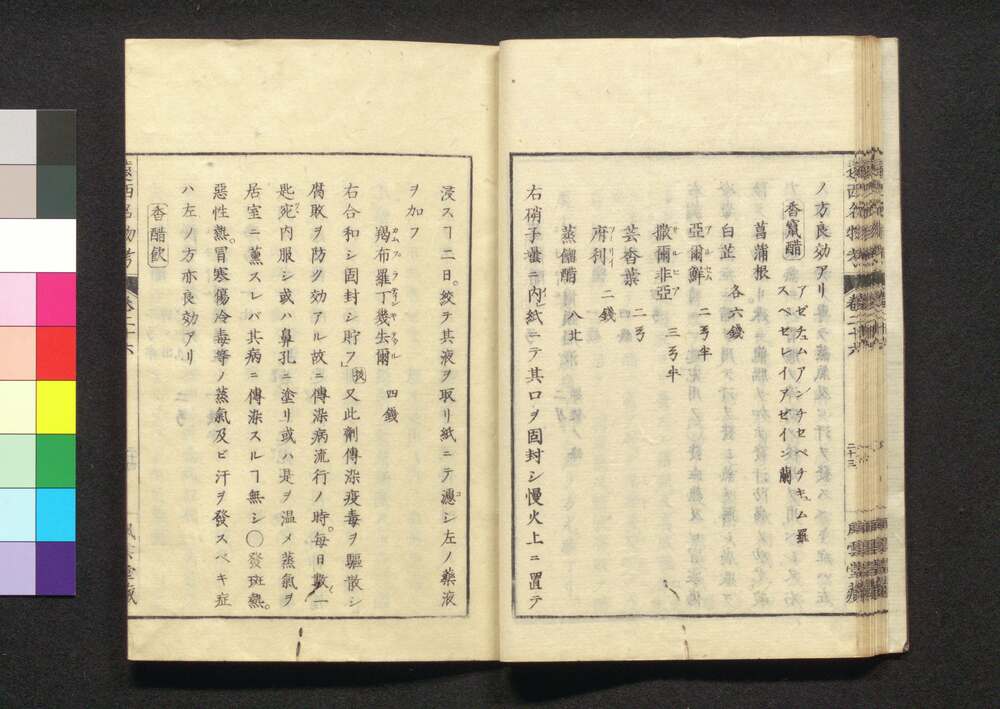 ノ方良効アリ
香竄醋
アゼチュム アンチセペチキュム 羅
スペセレイ アゼイン 蘭
菖蒲根
白芷 各六錢
亞爾鮮 二ヲ半
撒爾非亞 三ヲ半
芸香葉 二ヲ
府利 二錢
蒸餾醋 八北
右硝子壜ニ内レ紙ニテ其口ヲ固封シ慢火上ニ置テ
二十三
風雲堂藏
浸スヿ二日。絞テ其液ヲ取リ紙ニテ漉シ左ノ藥液
ヲ加フ
羯布羅丁幾去爾 四錢
右合和シ固封シ貯フ 又此劑傳染疫毒ヲ驅散シ
腐敗ヲ防ク効アル故ニ傳染病流行ノ時。每日數一
匙宛内服シ或ハ鼻孔ニ塗リ或ハ是ヲ温メ蒸氣ヲ
居室ニ薫スレバ其病ニ傳染スルヿ無シ〇發斑熱。
惡性熱。冒寒傷冷毒等ノ蒸氣及ビ汗ヲ發スベキ症
ハ左ノ方亦良効アリ
香醋飲